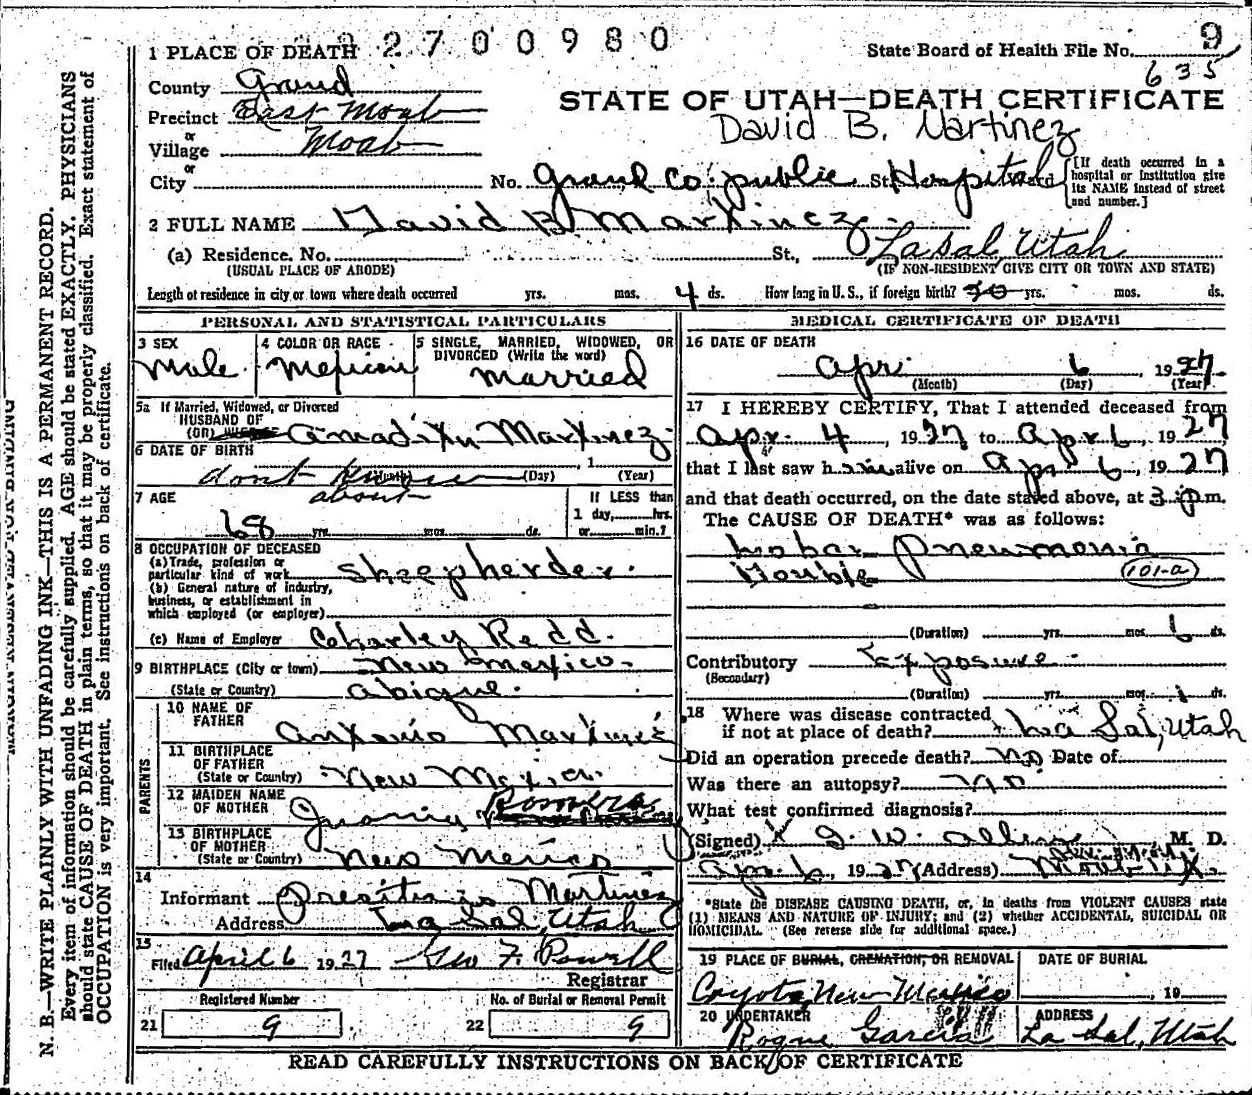 2700980
1 PLACE OF DEATH
State Board of Health File No. 9
635
County Grand
STATE OF UTAH—DEATH CERTIFICATE
Precinct East Moab
David B. Martinez
or
Village Moab
or
City No. Grand Co. public St. Hospital Ward
[If death occurred in a hospital or institution give its NAME instead of street and number.]
2 FULL NAME David B Martinez
(a) Residence. No. St., La Sal, Utah
(USUAL PLACE OF ABODE) (IF NON-RESIDENT GIVE CITY OR TOWN AND STATE)
Length of residence in city or town where death occurred yrs. mos. 4 ds. How long in U. S., if foreign birth? yrs. mos. ds.
PERSONAL AND STATISTICAL PARTICULARS
3 SEX
Male
4 COLOR OR RACE
Mexican
5 SINGLE, MARRIED, WIDOWED, OR DIVORCED (Write the word)
Married
5a If Married, Widowed, or Divorced
HUSBAND OF
(OR) Martinez
6 DATE OF BIRTH
dont know (Month) (Day) , 1 (Year)
7 AGE about
68 yrs. mos. ds.
If LESS than
1 day, hrs.
or min.?
8 OCCUPATION OF DECEASED
(a) Trade, profession or
particular kind of work Sheepherder.
(b) General nature of industry,
business, or establishment in
which employed (or employer)
(c) Name of Employer Charley Redd.
9 BIRTHPLACE (City or town) New Mexico
(State or Country) Abique.
PARENTS
10 NAME OF FATHER
Antonio Martinez
11 BIRTHPLACE OF FATHER
(State or Country) New Mexico
12 MAIDEN NAME OF MOTHER
Romero
13 BIRTHPLACE OF MOTHER
(State or Country) New Mexico
14
Informant Martinez
Address La Sal, Utah
15
Filed April 6 1927 Geo F. Powell
Registrar
Registered Number
21 9
No. of Burial or Removal Permit
22 9
MEDICAL CERTIFICATE OF DEATH
16 DATE OF DEATH
Apr. 6, 1927
(Month) (Day) (Year)
17 I HEREBY CERTIFY, That I attended deceased from
Apr. 4, 1927 to Apr 6, 1927
that I last saw him alive on Apr 6, 1927
and that death occurred, on the date stated above, at 3 p.m.
The CAUSE OF DEATH* was as follows:
Lobar Pneumonia
Double 101-a
(Duration) yrs. mos. 6 ds.
Contributory Exposure
(Secondary)
(Duration) yrs. mos. 1 ds.
18 Where was disease contracted
if not at place of death? La Sal, Utah
Did an operation precede death? No Date of
Was there an autopsy? No
What test confirmed diagnosis?
(Signed) J. W. Allen M. D.
Apr 6, 1927 (Address) Moab Ut.
*State the DISEASE CAUSING DEATH, or, in deaths from VIOLENT CAUSES state
(1) MEANS AND NATURE OF INJURY; and (2) whether ACCIDENTAL, SUICIDAL OR
HOMICIDAL. (See reverse side for additional space.)
19 PLACE OF BURIAL, CREMATION, OR REMOVAL
Coyote, New Mexico
DATE OF BURIAL
, 19
20 UNDERTAKER
Roque Garcia
ADDRESS
La Sal, Utah
READ CAREFULLY INSTRUCTIONS ON BACK OF CERTIFICATE
MARGIN RESERVED FOR BINDING
N. B.—WRITE PLAINLY WITH UNFADING INK—THIS IS A PERMANENT RECORD.
Every item of information should be carefully supplied. AGE should be stated EXACTLY. PHYSICIANS
should state CAUSE OF DEATH in plain terms, so that it may be properly classified. Exact statement of
OCCUPATION is very important. See instructions on back of certificate.